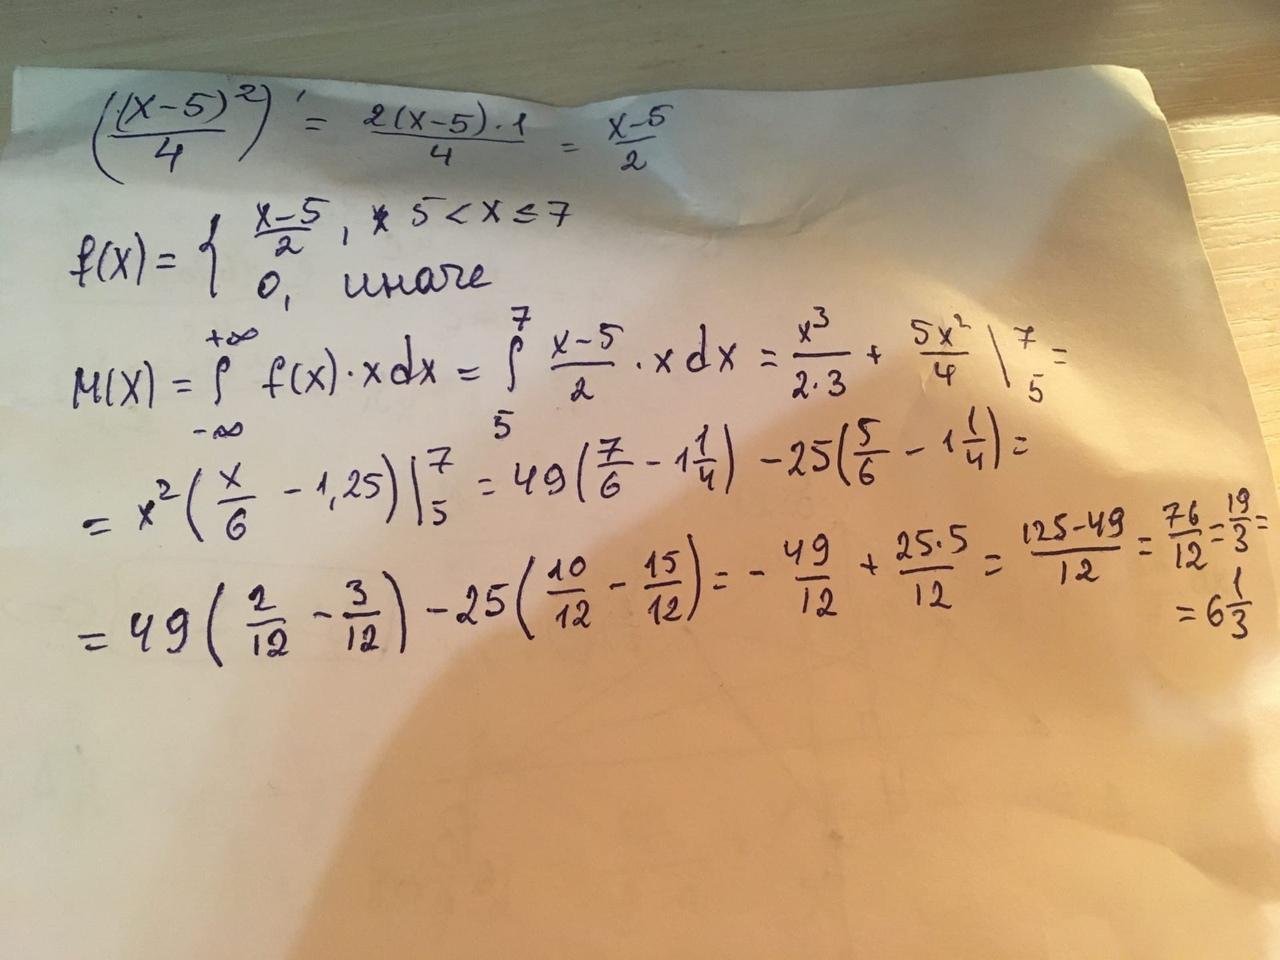 ((x-5)²/4)' = 2(x-5)·1/4 = x-5/2
f(x) = { x-5/2, 5 < x ≤ 7
0, иначе
M(X) = ∫_{-∞}^{+∞} f(x)·x dx = ∫_5^7 x-5/2 · x dx = x³/2·3 + 5x²/4 |_5^7 =
= x² (x/6 - 1,25) |_5^7 = 49(7/6 - 1 1/4) - 25(5/6 - 1 1/4) =
= 49(2/12 - 3/12) - 25(10/12 - 15/12) = - 49/12 + 25·5/12 = 125-49/12 = 76/12 = 19/3 =
= 6 1/3